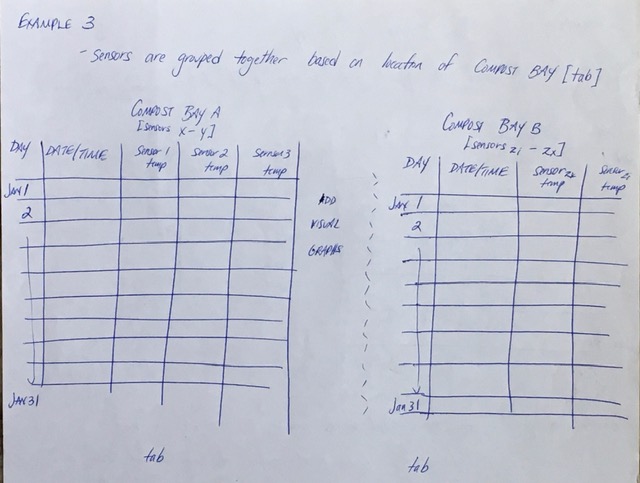 EXAMPLE 3
- Sensors are grouped together based on location of COMPOST BAY [tab]
COMPOST BAY A
[sensors x - y]
DAY DATE/TIME Sensor 1 temp Sensor 2 temp Sensor 3 temp
JAN 1
2
JAN 31
tab
ADD
VISUAL
GRAPHS
COMPOST BAY B
[sensors zi - zx]
DAY DATE/TIME Sensor temp Sensor zi temp
JAN 1
2
Jan 31
tab